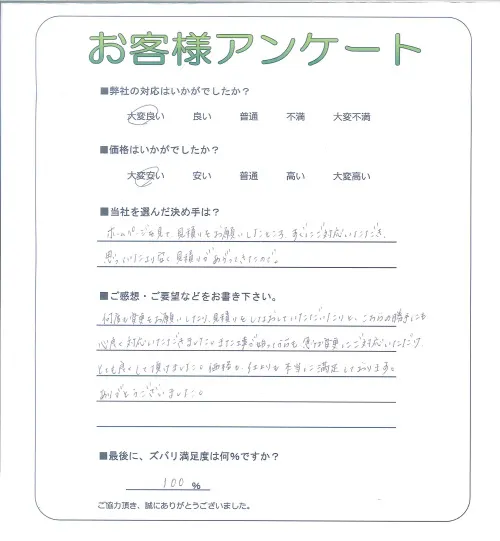 お客様アンケート
■弊社の対応はいかがでしたか?
大変良い 良い 普通 不満 大変不満
■価格はいかがでしたか?
大変安い 安い 普通 高い 大変高い
■当社を選んだ決め手は?
ホームページを見て見積りをお願いしたところ、すぐにご対応いただき、
思っていたより安く見積りがあがってきたので。
■ご感想・ご要望などをお書き下さい。
何度も変更をお願いしたり、見積りをしなおしていただいたりと、こちらの勝手にも
心良く対応いただきました。また工事が始まってからも 急な変更にご対応いただけ、
とても良くして頂けました。価格も、仕上りも本当に満足しております。
ありがとうございました。
■最後に、ズバリ満足度は何%ですか?
100 %
ご協力頂き、誠にありがとうございました。